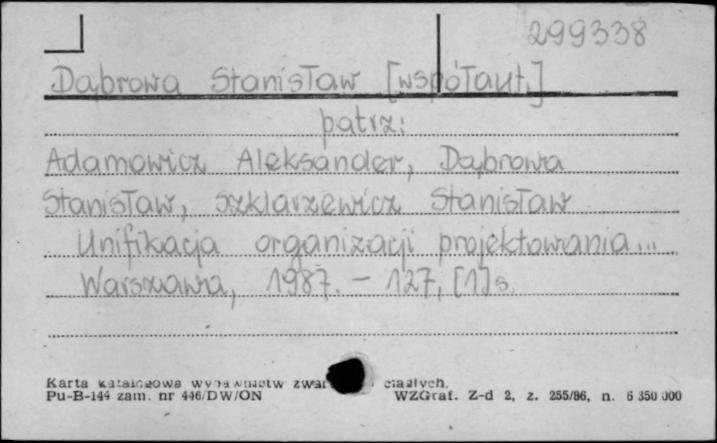 299338
Dąbrowa Stanisław [współaut.]
patrz:
Adamowicz Aleksander, Dąbrowa
Stanisław, Szklarzewicz Stanisław
Unifikacja organizacji projektowania...
Warszawa, 1987. – 127, [1] s.
Karta katalogowa wydawnictw zwar ciągłych.
Pu-B-144 zam. nr 446/DW/ON WZGraf. Z-d 2, z. 255/86, n. 6 350 000